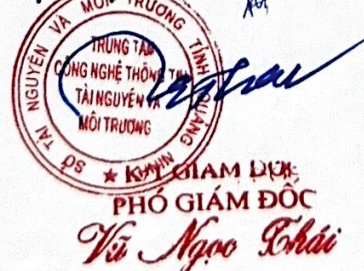 SỞ TÀI NGUYÊN VÀ MÔI TRƯỜNG TỈNH QUẢNG NINH
TRUNG TÂM
CÔNG NGHỆ THÔNG TIN
TÀI NGUYÊN VÀ
MÔI TRƯỜNG
KT GIÁM ĐỐC
PHÓ GIÁM ĐỐC
Vũ Ngọc Thái